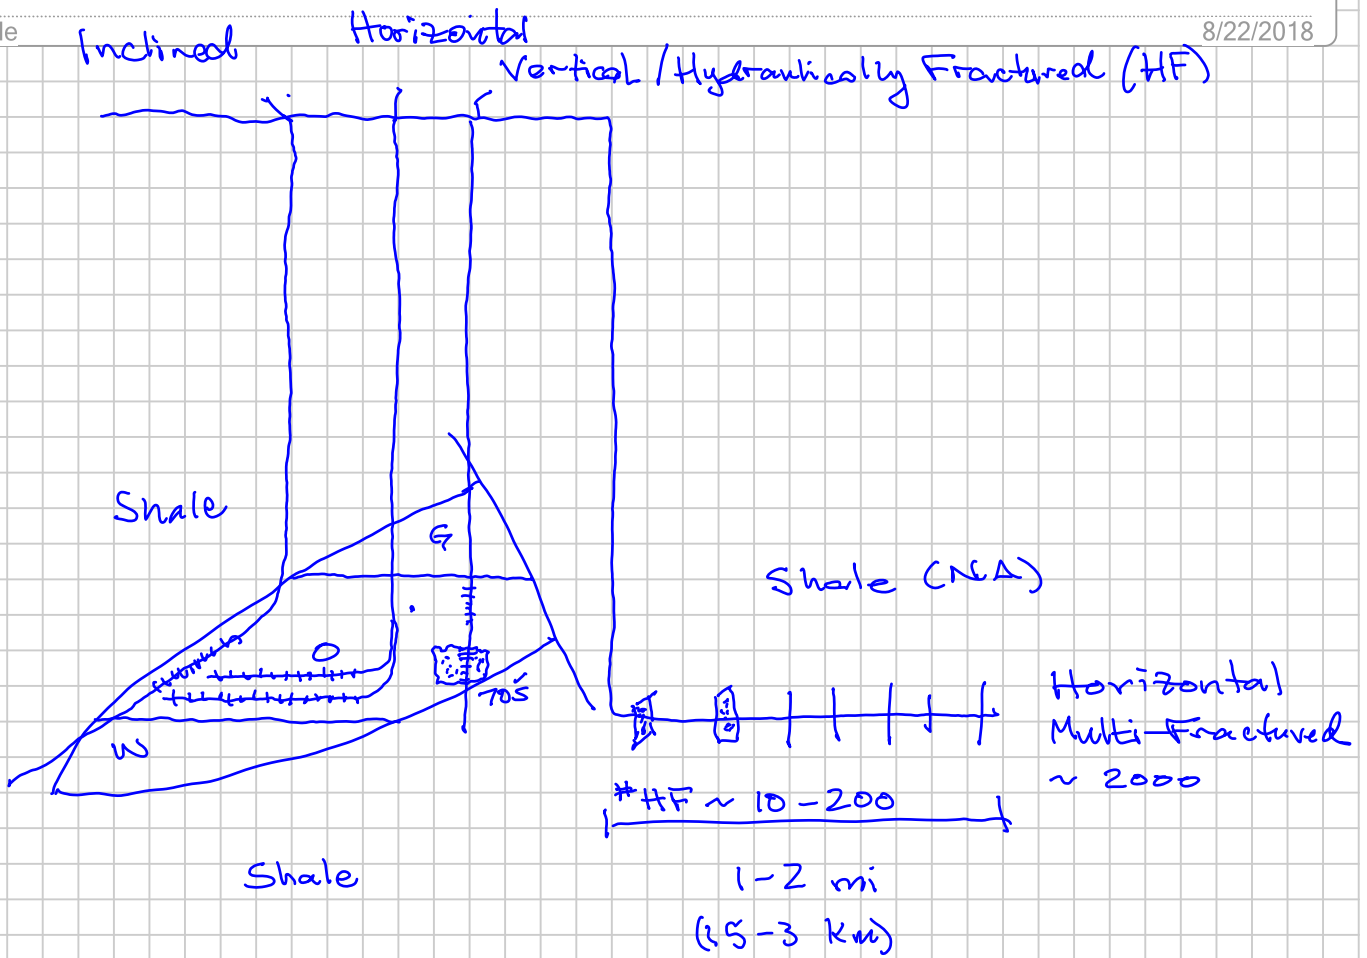 le
8/22/2018
Inclined
Horizontal
Vertical / Hydraulically Fractured (HF)
Shale
G
Shale (NA)
O
70's
W
Horizontal
Multi-Fractured
~ 2000
#HF ~ 10 - 200
Shale
1-2 mi
(1.5-3 km)